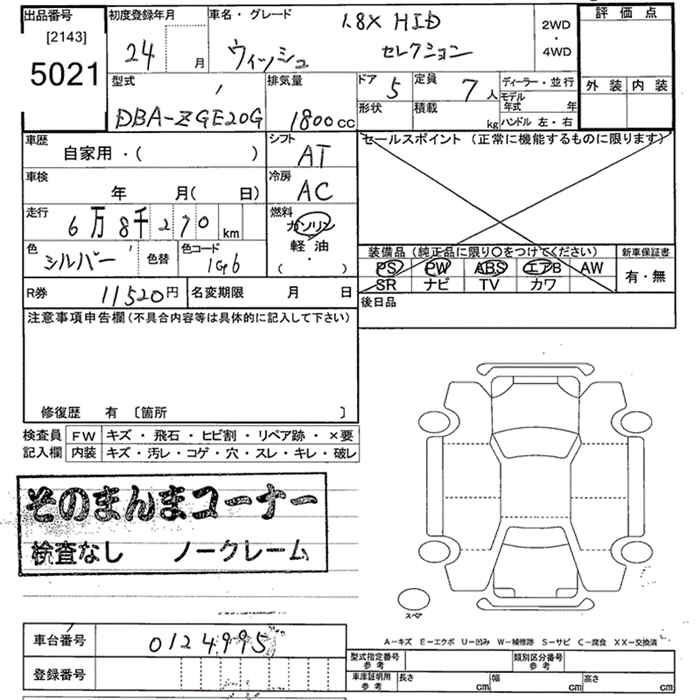 出品番号
[2143]
5021
初度登録年月
24 月
車名・グレード 1.8X HID
ウィッシュ セレクション
2WD
・
4WD
評価点
外装 内装
型式
DBA-ZGE20G
排気量
1800cc
ドア 5
定員 7人
形状
積載 kg
ディーラー・並行
モデル年式 年
ハンドル 左・右
車歴
自家用・( )
シフト
AT
セールスポイント (正常に機能するものに限ります)
車検
年 月( 日)
冷房
AC
走行
6万8千270km
燃料
ガソリン
軽油
・
( )
色
シルバー
色替
色コード
1G6
装備品(純正品に限り○をつけてください)
PS PW ABS エアB AW
SR ナビ TV カワ
新車保証書
有・無
R券 11520円
名変期限 月 日
後日品
注意事項申告欄(不具合内容等は具体的に記入して下さい)
修復歴 有 〔箇所 〕
検査員記入欄
FW キズ・飛石・ヒビ割・リペア跡・×要
内装 キズ・汚レ・コゲ・穴・スレ・キレ・破レ
そのまんまコーナー
検査なし ノークレーム
スペア
車台番号 0124995
登録番号
A−キズ E−エクボ U−凹み W−補修跡 S−サビ C−腐食 XX−交換済
型式指定番号
参考
類別区分番号
参考
車庫証明用
参考
長さ cm 幅 cm 高さ cm